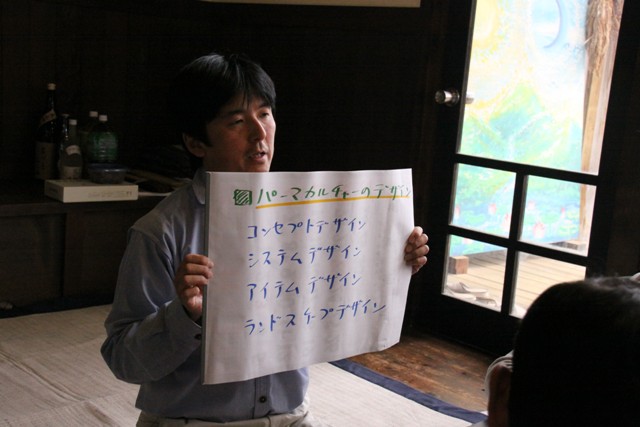 パーマカルチャーのデザイン
コンセプトデザイン
システムデザイン
アイテムデザイン
ランドスケープデザイン